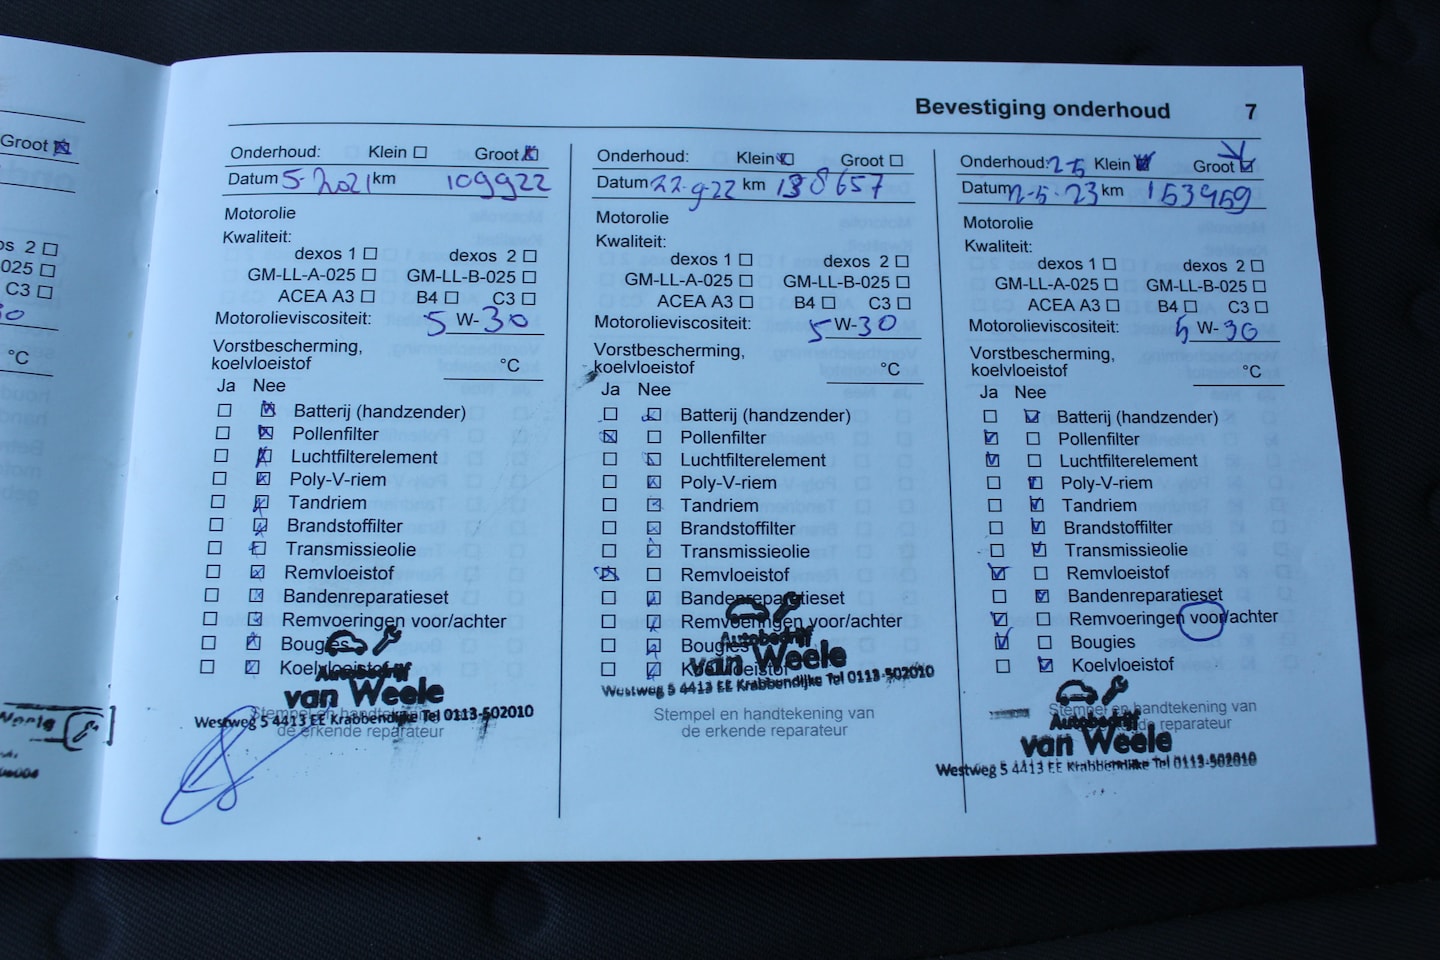 Groot
exos 2
025
C3
30
°C
Bevestiging onderhoud 7
Onderhoud: Klein Groot
Datum 5-2021 km 109922
Motorolie
Kwaliteit:
dexos 1 dexos 2
GM-LL-A-025 GM-LL-B-025
ACEA A3 B4 C3
Motorolieviscositeit: 5 W-30
Vorstbescherming,
koelvloeistof °C
Ja Nee
Batterij (handzender)
Pollenfilter
Luchtfilterelement
Poly-V-riem
Tandriem
Brandstoffilter
Transmissieolie
Remvloeistof
Bandenreparatieset
Remvoeringen voor/achter
Bougies
Koelvloeistof
Autobedrijf
van Weele
Westweg 5 4413 EE Krabbendijke Tel 0113-502010
Stempel en handtekening van
de erkende reparateur
Onderhoud: Klein Groot
Datum 22-9-22 km 138657
Motorolie
Kwaliteit:
dexos 1 dexos 2
GM-LL-A-025 GM-LL-B-025
ACEA A3 B4 C3
Motorolieviscositeit: 5 W-30
Vorstbescherming,
koelvloeistof °C
Ja Nee
Batterij (handzender)
Pollenfilter
Luchtfilterelement
Poly-V-riem
Tandriem
Brandstoffilter
Transmissieolie
Remvloeistof
Bandenreparatieset
Remvoeringen voor/achter
Bougies
Koelvloeistof
Autobedrijf
van Weele
Westweg 5 4413 EE Krabbendijke Tel 0113-502010
Stempel en handtekening van
de erkende reparateur
Onderhoud: 2-5 Klein Groot
Datum 2-5-23 km 153959
Motorolie
Kwaliteit:
dexos 1 dexos 2
GM-LL-A-025 GM-LL-B-025
ACEA A3 B4 C3
Motorolieviscositeit: 5 W-30
Vorstbescherming,
koelvloeistof °C
Ja Nee
Batterij (handzender)
Pollenfilter
Luchtfilterelement
Poly-V-riem
Tandriem
Brandstoffilter
Transmissieolie
Remvloeistof
Bandenreparatieset
Remvoeringen voor/achter
Bougies
Koelvloeistof
Stempel en handtekening van
de erkende reparateur
Autobedrijf
van Weele
Westweg 5 4413 EE Krabbendijke Tel 0113-502010